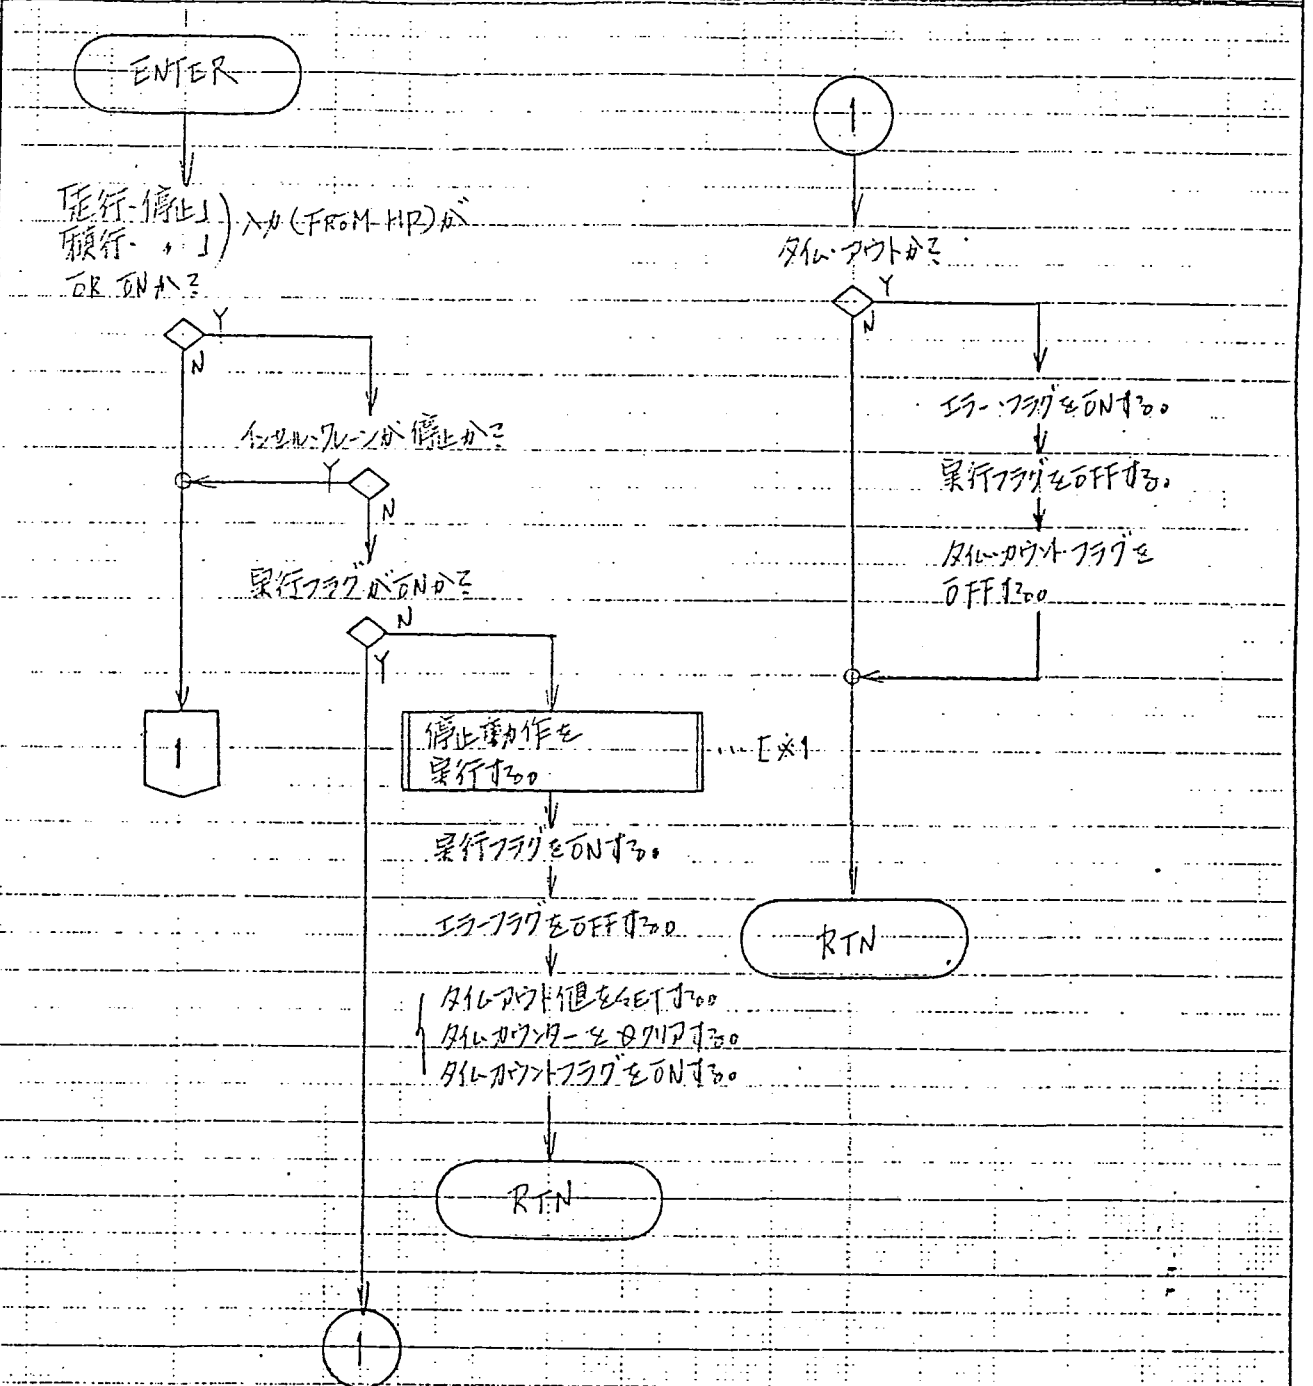 ENTER
「走行・停止」
「横行・〃」
入力(FROM HP)が
OR ONか?
Y
N
クレーンが停止か?
Y
N
実行フラグがONか?
N
Y
1
停止動作を
実行する。
…[※1
実行フラグをONする。
エラーフラグをOFFする。
タイムアウト値をSETする。
タイムカウンターを0クリアする。
タイムカウントフラグをONする。
RTN
1
1
タイム・アウトか?
Y
N
エラー・フラグをONする。
実行フラグをOFFする。
タイムカウント・フラグを
OFFする。
RTN